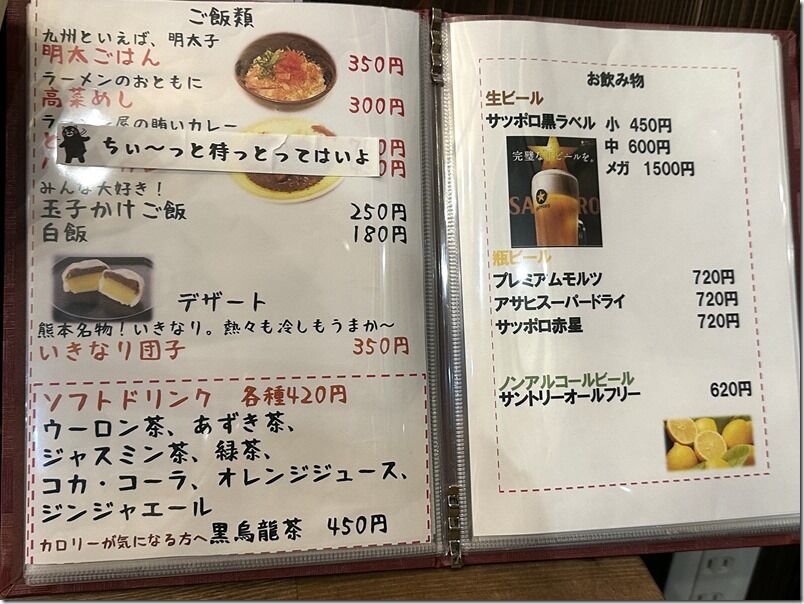 ご飯類
九州といえば、明太子
明太ごはん 350円
ラーメンのおともに
高菜めし 300円
の賄いカレー
ちぃ～っと待っとってはいよ
みんな大好き！
玉子かけご飯 250円
白飯 180円
デザート
熊本名物！いきなり。熱々も冷しもうまか～
いきなり団子 350円
ソフトドリンク 各種420円
ウーロン茶、あずき茶、
ジャスミン茶、緑茶、
コカ・コーラ、オレンジジュース、
ジンジャエール
カロリーが気になる方へ黒烏龍茶 450円
お飲み物
生ビール
サッポロ黒ラベル 小 450円
中 600円
メガ 1500円
瓶ビール
プレミアムモルツ 720円
アサヒスーパードライ 720円
サッポロ赤星 720円
ノンアルコールビール
サントリーオールフリー 620円